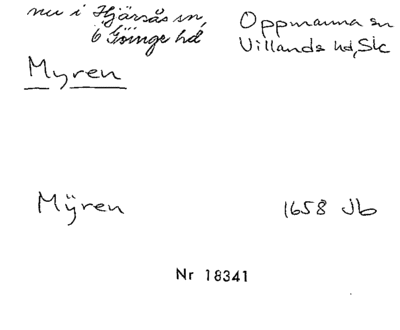 nu i Hjärsås sn,
Ö Göinge hd
Oppmanna sn
Villands hd, Sk
Myren
Mÿren 1658 Jb
Nr 18341